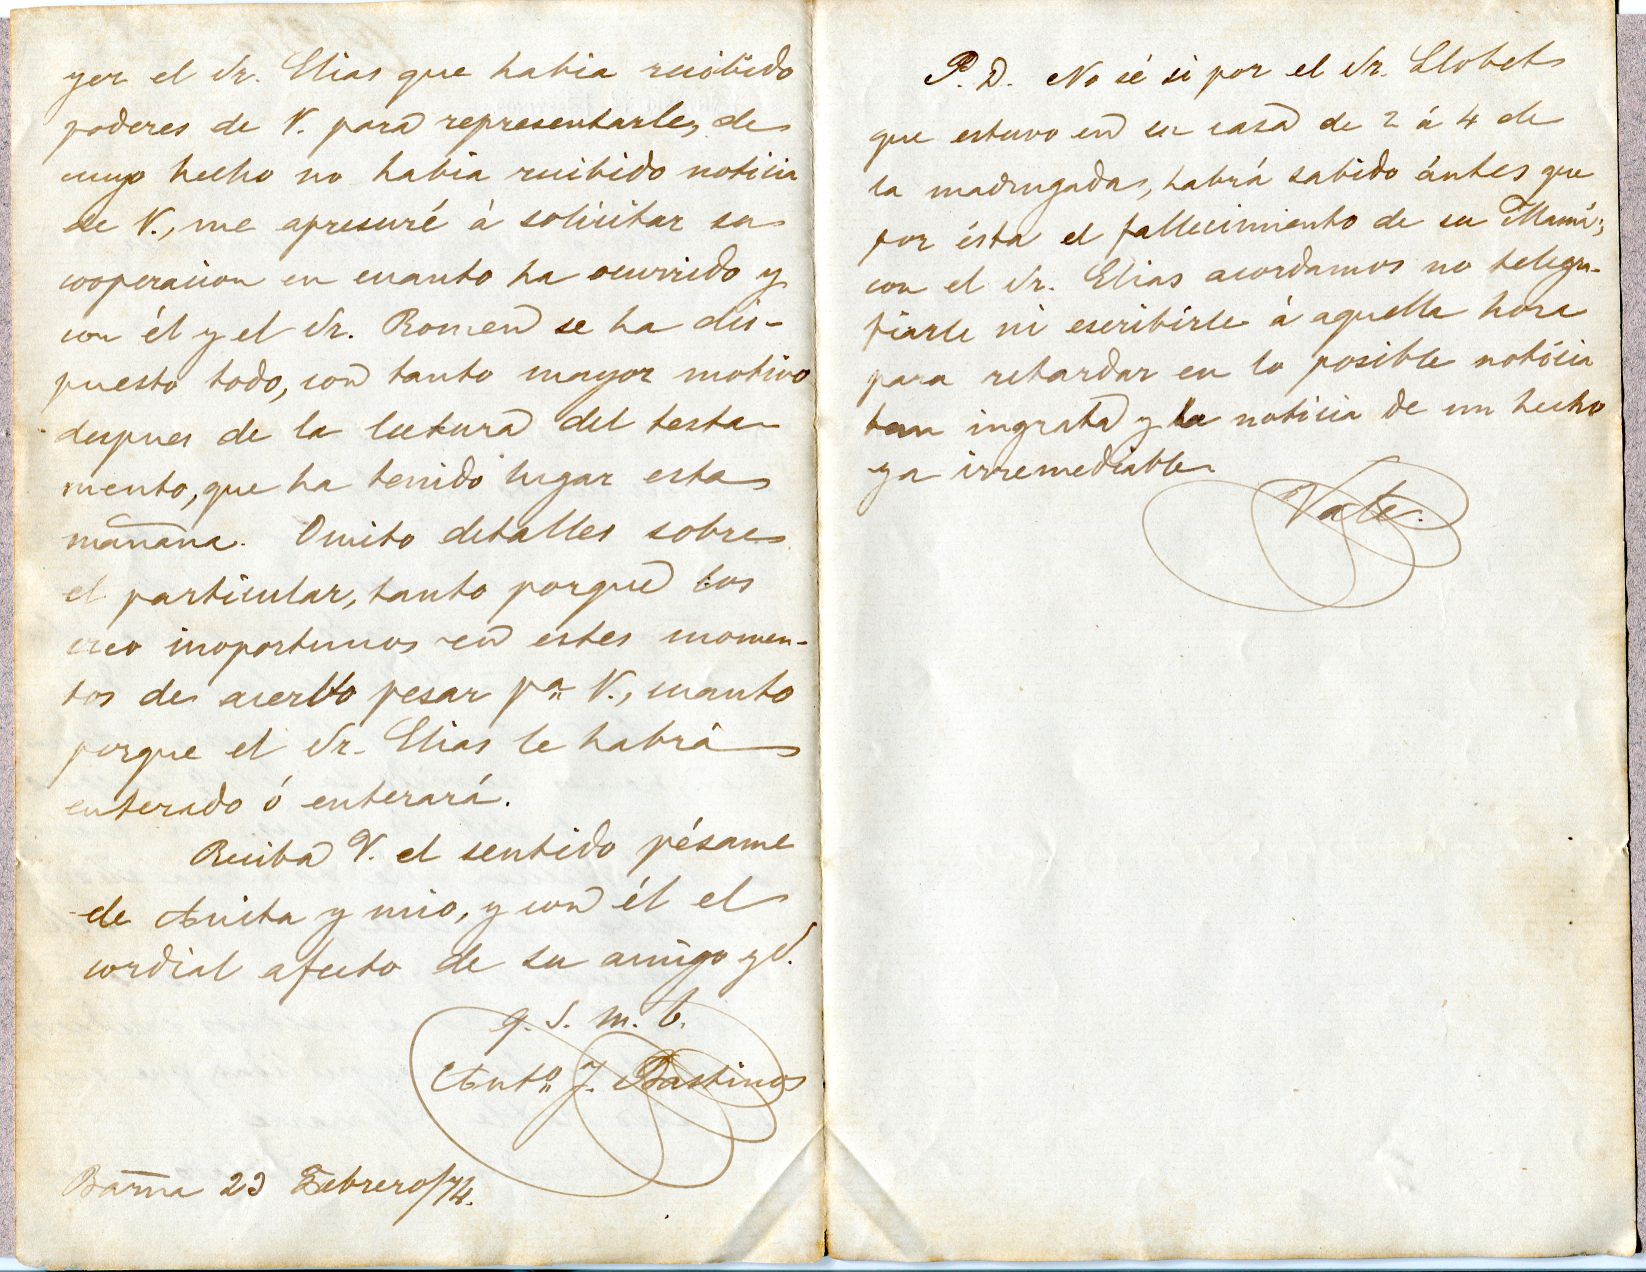 yer el Sr. Elias que habia recibido
poderes de V. para representarle, de
cuyo hecho no habia recibido noticia
de V., me apresuré á solicitar su
cooperacion en cuanto ha ocurrido y
con él y el Sr. Romeu se ha dis-
puesto todo, con tanto mayor motivo
despues de la lectura del testa-
mento, que ha tenido lugar esta
mañana. Omito detalles sobre
el particular, tanto porque los
creo inoportunos en estes momen-
tos de acerbo pesar pª V., cuanto
porque el Sr. Elias le habrá
enterado ó enterará.
Reciba V. el sentido pésame
de Anita y mio, y con él el
cordial afecto de su amigo y S.
q. S. M. B.
Antº J. Bastinos
Barna 23 Febrero/74.
P. D. No sé si por el Sr. Llobet
que estuvo en su casa de 2 á 4 de
la madrugada, habrá sabido ántes que
por ésta el fallecimiento de su Mamá;
con el Sr. Elias acordamos no telegra-
fiarle ni escribirle á aquella hora
para retardar en lo posible noticia
tan ingrata y la noticia de un hecho
ya irremediable.
Vale.